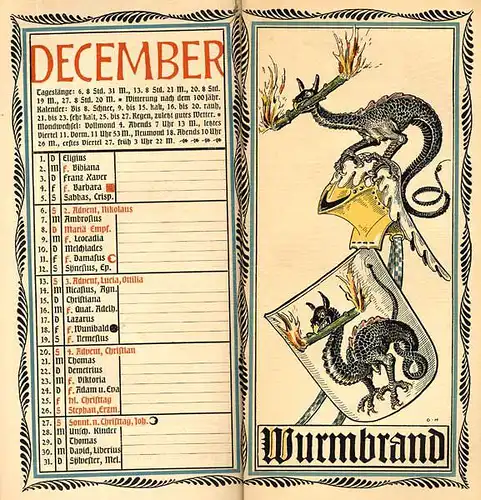 DECEMBER
Tageslänge: 6. 8 Std. 31 M., 13. 8 Std. 21 M., 20. 8 Std.
19 M., 27. 8 Std. 20 M. * Witterung nach dem 100jähr.
Kalender: Bis 8. Schnee, 9. bis 15. kalt, 16. bis 20. rauh,
21. bis 23. sehr kalt, 25. bis 27. Regen, zuletzt gutes Wetter. *
Mondwechsel: Vollmond 4. Abends 7 Uhr 13 M., letztes
Viertel 11. Vorm. 11 Uhr 53 M., Neumond 18. Abends 10 Uhr
26 M., erstes Viertel 27. früh 3 Uhr 22 M.
1. D Eligius
2. M f. Bibiana
3. D Franz Xaver
4. F f. Barbara
5. S Sabbas, Crisp.
6. S 2. Advent, Nikolaus
7. M Ambrosius
8. D Mariä Empf.
9. M f. Leocadia
10. D Melchiades
11. F f. Damasus
12. S Synesius, Ep.
13. S 3. Advent, Lucia, Ottilia
14. M Nicasius, Agn.
15. D Christiana
16. M f. Quat. Adelh.
17. D Lazarus
18. F f. Wunibald
19. S f. Nemesius
20. S 4. Advent, Christian
21. M Thomas
22. D Demetrius
23. M f. Viktoria
24. D f. Adam u. Eva
25. F hl. Christtag
26. S Stephan, Erzm.
27. S Sonnt. n. Christtag, Joh.
28. M Unsch. Kinder
29. D Thomas
30. M David, Liberius
31. D Sylvester, Mel.
O·H
Wurmbrand